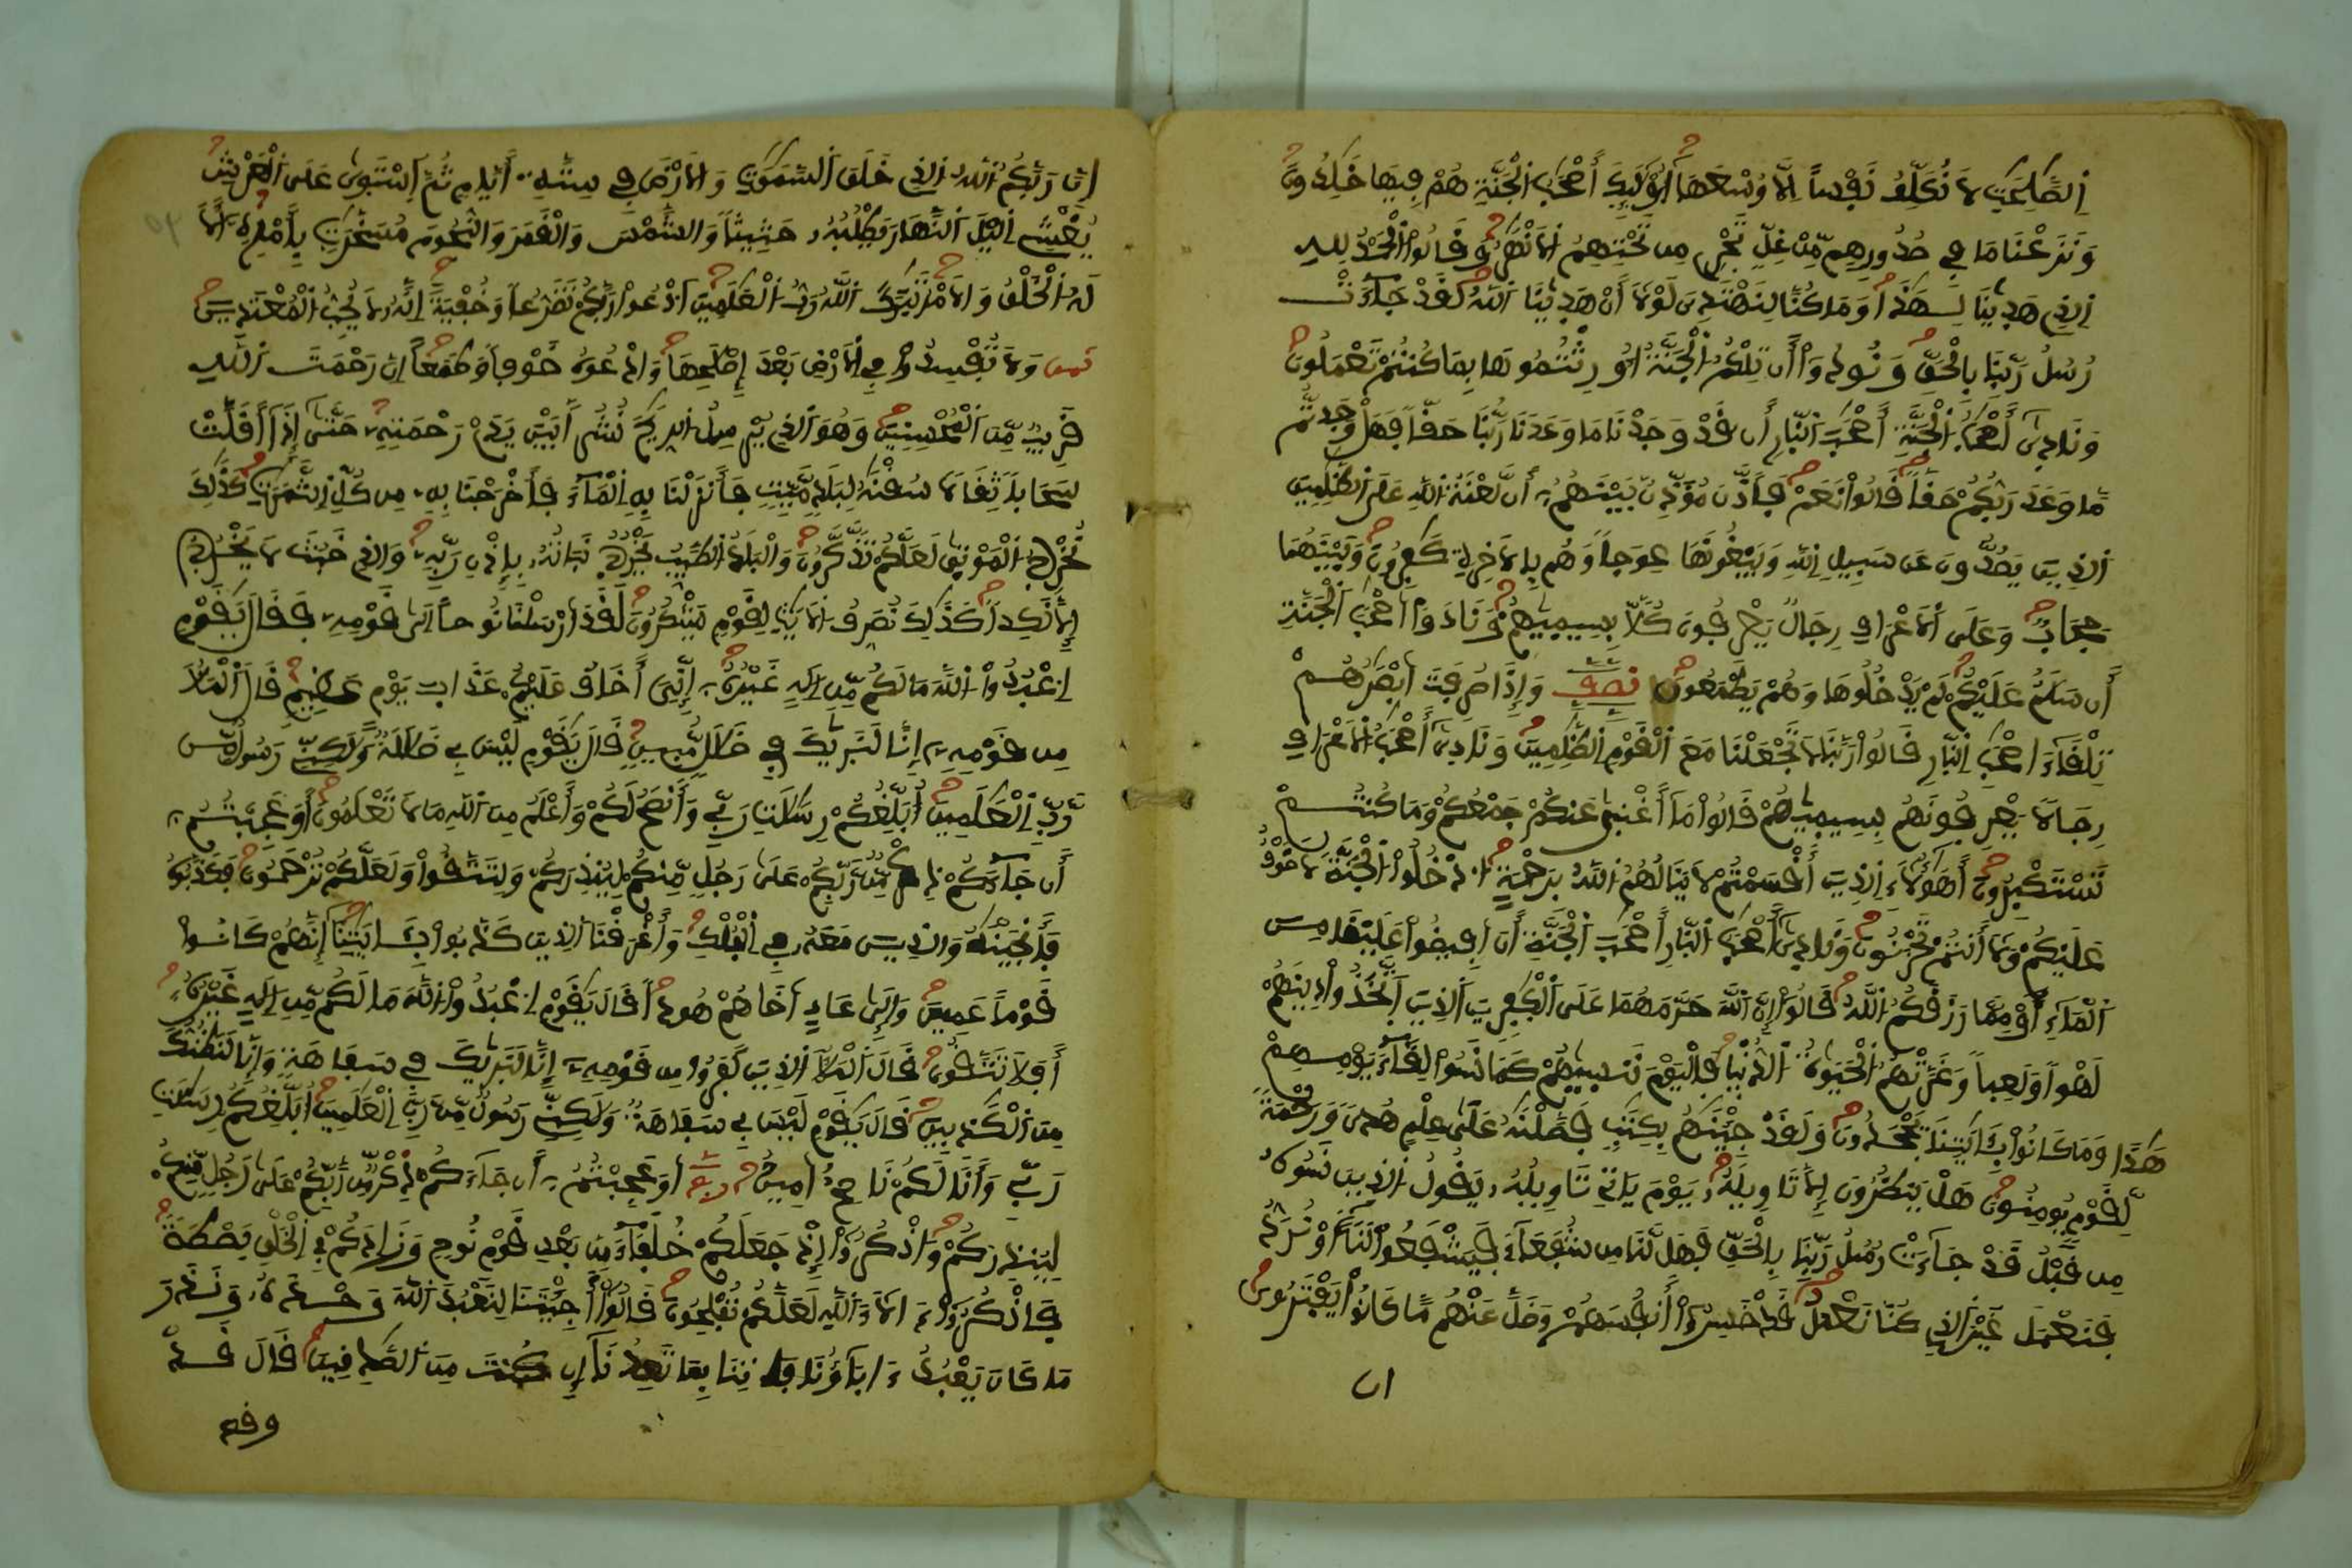 اِ۬لصَّٰلِحَٰتِ لَا نُكَلِّفُ نَفْساً اِلَّا وُسْعَهَا أُوْلَٰٓئِكَ أَصْحَٰبُ اُ۬لْجَنَّةِ هُمْ فِيهَا خَٰلِدُونَ
وَنَزَعْنَا مَا فِے صُدُورِهِم مِّنْ غِلّٖ تَجْرِے مِن تَحْتِهِمُ اُ۬لْأَنْهَٰرُ وَقَالُواْ اُ۬لْحَمْدُ لِلهِ
اِ۬لذِے هَدٜيٰنَا لِهَٰذَا وَمَا كُنَّا لِنَهْتَدِيَ لَوْلَا أَنْ هَدٜيٰنَا اَ۬للَّهُ لَقَدْ جَآءَتْ
رُسُلُ رَبِّنَا بِالْحَقِّ وَنُودُواْ أَن تِلْكُمُ اُ۬لْجَنَّةُ أُورِثْتُمُوهَا بِمَا كُنتُمْ تَعْمَلُونَ
وَنَادٜيٰٓ أَصْحَٰبُ اُ۬لْجَنَّةِ أَصْحَٰبَ اَ۬لنّ۪ارِ أَن قَدْ وَجَدْنَا مَا وَعَدَنَا رَبُّنَا حَقّاً فَهَلْ وَجَدتُّم
مَّا وَعَدَ رَبُّكُمْ حَقّاً قَالُواْ نَعَمْ فَأَذَّنَ مُؤَذِّنٌ بَيْنَهُمُۥ أَن لَّعْنَةُ اُ۬للهِ عَلَي اَ۬لظَّٰلِمِينَ
اَ۬لذِينَ يَصُدُّونَ عَن سَبِيلِ اِ۬للهِ وَيَبْغُونَهَا عِوَجاً وَهُم بِالْأٓخِرَةِ كَٰفِرُونَ وَبَيْنَهُمَا
حِجَابٌ وَعَلَي اَ۬لْأَعْرَافِ رِجَالٌ يَعْرِفُونَ كُلّاَۢ بِسِيمٜيٰهُمْ وَنَادَوَاْ اَصْحَٰبَ اَ۬لْجَنَّةِ
أَن سَلَٰمٌ عَلَيْكُمْ لَمْ يَدْخُلُوهَا وَهُمْ يَطْمَعُونَ نصف وَإِذَا صُرِفَتَ اَبْصَٰرُهُمْ
تِلْقَآءَ اَصْحَٰبِ اِ۬لنّ۪ارِ قَالُواْ رَبَّنَا لَا تَجْعَلْنَا مَعَ اَ۬لْقَوْمِ اِ۬لظَّٰلِمِينَ وَنَادٜيٰٓ أَصْحَٰبُ اُ۬لْأَعْرَافِ
رِجَالاً يَعْرِفُونَهُم بِسِيمٜيٰهُمْ قَالُواْ مَآ أَغْنٜيٰ عَنكُمْ جَمْعُكُمْ وَمَا كُنتُمْ
تَسْتَكْبِرُونَ أَهَٰٓؤُلَآءِ اِ۬لذِينَ أَقْسَمْتُمْ لَا يَنَالُهُمُ اُ۬للَّهُ بِرَحْمَةٍ اُ۟دْخُلُواْ اُ۬لْجَنَّةَ لَا خَوْفٌ
عَلَيْكُمْ وَلَا أَنتُمْ تَحْزَنُونَ وَنَادٜيٰٓ أَصْحَٰبُ اُ۬لنّ۪ارِ أَصْحَٰبَ اَ۬لْجَنَّةِ أَنَ اَفِيضُواْ عَلَيْنَا مِنَ
اَ۬لْمَآءِ اَوْ مِمَّا رَزَقَكُمُ اُ۬للَّهُ قَالُواْ إِنَّ اَ۬للَّهَ حَرَّمَهُمَا عَلَي اَ۬لْكٰٜفِرِينَ اَ۬لذِينَ اَ۪تَّخَذُواْ دِينَهُمْ
لَهْواً وَلَعِباً وَغَرَّتْهُمُ اُ۬لْحَيَوٰةُ اُ۬لدُّنْي۪ا فَالْيَوْمَ نَنسٜيٰهُمْ كَمَا نَسُواْ لِقَآءَ يَوْمِهِمْ
هَٰذَا وَمَا كَانُواْ بِـَٔايَٰتِنَا يَجْحَدُونَ وَلَقَدْ جِئْنَٰهُم بِكِتَٰبٖ فَصَّلْنَٰهُ عَلَيٰ عِلْمٍ هُديٗ وَرَحْمَةٗ
لِّقَوْمٖ يُومِنُونَ هَلْ يَنظُرُونَ إِلَّا تَاوِيلَهُۥ يَوْمَ يَاتِے تَاوِيلُهُۥ يَقُولُ اُ۬لذِينَ نَسُوهُ
مِن قَبْلُ قَدْ جَآءَتْ رُسُلُ رَبِّنَا بِالْحَقِّ فَهَل لَّنَا مِن شُفَعَآءَ فَيَشْفَعُواْ لَنَآ أَوْ نُرَدُّ
فَنَعْمَلَ غَيْرَ اَ۬لذِے كُنَّا نَعْمَلُ قَدْ خَسِرُواْ أَنفُسَهُمْ وَضَلَّ عَنْهُم مَّا كَانُواْ يَفْتَرُونَ
ان
إِنَّ رَبَّكُمُ اُ۬للَّهُ اُ۬لذِے خَلَقَ اَ۬لسَّمَٰوَٰتِ وَالْأَرْضَ فِے سِتَّةِ أَيَّامٖ ثُمَّ اَ۪سْتَوٜيٰ عَلَي اَ۬لْعَرْشِ
يُغْشِے اِ۬ليْلَ اَ۬لنَّهَارَ يَطْلُبُهُۥ حَثِيثاً وَالشَّمْسَ وَالْقَمَرَ وَالنُّجُومَ مُسَخَّرَٰتِۢ بِأَمْرِهِۦٓ أَلَا
لَهُ اُ۬لْخَلْقُ وَالْأَمْرُ تَبَٰرَكَ اَ۬للَّهُ رَبُّ اُ۬لْعَٰلَمِينَ اَ۟دْعُواْ رَبَّكُمْ تَضَرُّعاً وَخُفْيَةً اِنَّهُۥ لَا يُحِبُّ اُ۬لْمُعْتَدِينَ
ثمن وَلَا تُفْسِدُواْ فِے اِ۬لْأَرْضِ بَعْدَ إِصْلَٰحِهَا وَادْعُوهُ خَوْفاً وَطَمَعاً اِنَّ رَحْمَتَ اَ۬للَّهِ
قَرِيبٌ مِّنَ اَ۬لْمُحْسِنِينَ وَهُوَ اَ۬لذِے يُرْسِلُ اُ۬لرِّيَٰحَ نُشُراَۢ بَيْنَ يَدَےْ رَحْمَتِهِۦ حَتَّيٰٓ إِذَآ أَقَلَّتْ
سَحَاباً ثِقَالاً سُقْنَٰهُ لِبَلَدٖ مَّيِّتٖ فَأَنزَلْنَا بِهِ اِ۬لْمَآءَ فَأَخْرَجْنَا بِهِۦ مِن كُلِّ اِ۬لثَّمَرَٰتِ كَذَٰلِكَ
نُخْرِجُ اُ۬لْمَوْتٜيٰ لَعَلَّكُمْ تَذَّكَّرُونَ وَالْبَلَدُ اُ۬لطَّيِّبُ يَخْرُجُ نَبَاتُهُۥ بِإِذْنِ رَبِّهِۦ وَالذِے خَبُثَ لَا يَخْرُجُ
إِلَّا نَكِداً كَذَٰلِكَ نُصَرِّفُ اُ۬لْأٓيَٰتِ لِقَوْمٖ يَشْكُرُونَ لَقَدَ اَرْسَلْنَا نُوحاً اِلَيٰ قَوْمِهِۦ فَقَالَ يَٰقَوْمِ
اِ۟عْبُدُواْ اُ۬للَّهَ مَا لَكُم مِّنِ اِلَٰهٍ غَيْرُهُۥٓ إِنِّيَ أَخَافُ عَلَيْكُمْ عَذَابَ يَوْمٍ عَظِيمٖ قَالَ اَ۬لْمَلَأُ
مِن قَوْمِهِۦٓ إِنَّا لَنَرٜيٰكَ فِے ضَلَٰلٖ مُّبِينٖ قَالَ يَٰقَوْمِ لَيْسَ بِے ضَلَٰلَةٌ وَلَٰكِنِّے رَسُولٌ مِّن
رَّبِّ اِ۬لْعَٰلَمِينَ أُبَلِّغُكُمْ رِسَٰلَٰتِ رَبِّے وَأَنصَحُ لَكُمْ وَأَعْلَمُ مِنَ اَ۬للهِ مَا لَا تَعْلَمُونَ أَوَعَجِبْتُمُۥٓ
أَن جَآءَكُمْ ذِكْرٌ مِّن رَّبِّكُمْ عَلَيٰ رَجُلٖ مِّنكُمْ لِيُنذِرَكُمْ وَلِتَتَّقُواْ وَلَعَلَّكُمْ تُرْحَمُونَ فَكَذَّبُوهُ
فَأَنجَيْنَٰهُ وَالذِينَ مَعَهُۥ فِے اِ۬لْفُلْكِ وَأَغْرَقْنَا اَ۬لذِينَ كَذَّبُواْ بِـَٔايَٰتِنَآ إِنَّهُمْ كَانُواْ
قَوْماً عَمِينَ وَإِلَيٰ عَادٍ اَخَاهُمْ هُوداً قَالَ يَٰقَوْمِ اِ۟عْبُدُواْ اُ۬للَّهَ مَا لَكُم مِّنِ اِلَٰهٍ غَيْرُهُۥٓ
أَفَلَا تَتَّقُونَ قَالَ اَ۬لْمَلَأُ اُ۬لذِينَ كَفَرُواْ مِن قَوْمِهِۦٓ إِنَّا لَنَرٜيٰكَ فِے سَفَاهَةٖ وَإِنَّا لَنَظُنُّكَ
مِنَ اَ۬لْكَٰذِبِينَ قَالَ يَٰقَوْمِ لَيْسَ بِے سَفَاهَةٌ وَلَٰكِنِّے رَسُولٌ مِّن رَّبِّ اِ۬لْعَٰلَمِينَ أُبَلِّغُكُمْ رِسَٰلَٰتِ
رَبِّے وَأَنَا لَكُمْ نَاصِحٌ اَمِينٌ ربع أَوَعَجِبْتُمُۥٓ أَن جَآءَكُمْ ذِكْرٌ مِّن رَّبِّكُمْ عَلَيٰ رَجُلٖ مِّنكُمْ
لِيُنذِرَكُمْ وَاذْكُرُواْ إِذْ جَعَلَكُمْ خُلَفَآءَ مِنۢ بَعْدِ قَوْمِ نُوحٖ وَزَادَكُمْ فِے اِ۬لْخَلْقِ بَصْطَةً
فَاذْكُرُواْ ءَالَآءَ اَ۬للَّهِ لَعَلَّكُمْ تُفْلِحُونَ قَالُواْ أَجِئْتَنَا لِنَعْبُدَ اَ۬للَّهَ وَحْدَهُۥ وَنَذَرَ
مَا كَانَ يَعْبُدُ ءَابَآؤُنَا فَاتِنَا بِمَا تَعِدُنَآ إِن كُنتَ مِنَ اَ۬لصَّٰدِقِينَ قَالَ قَدْ
وقع